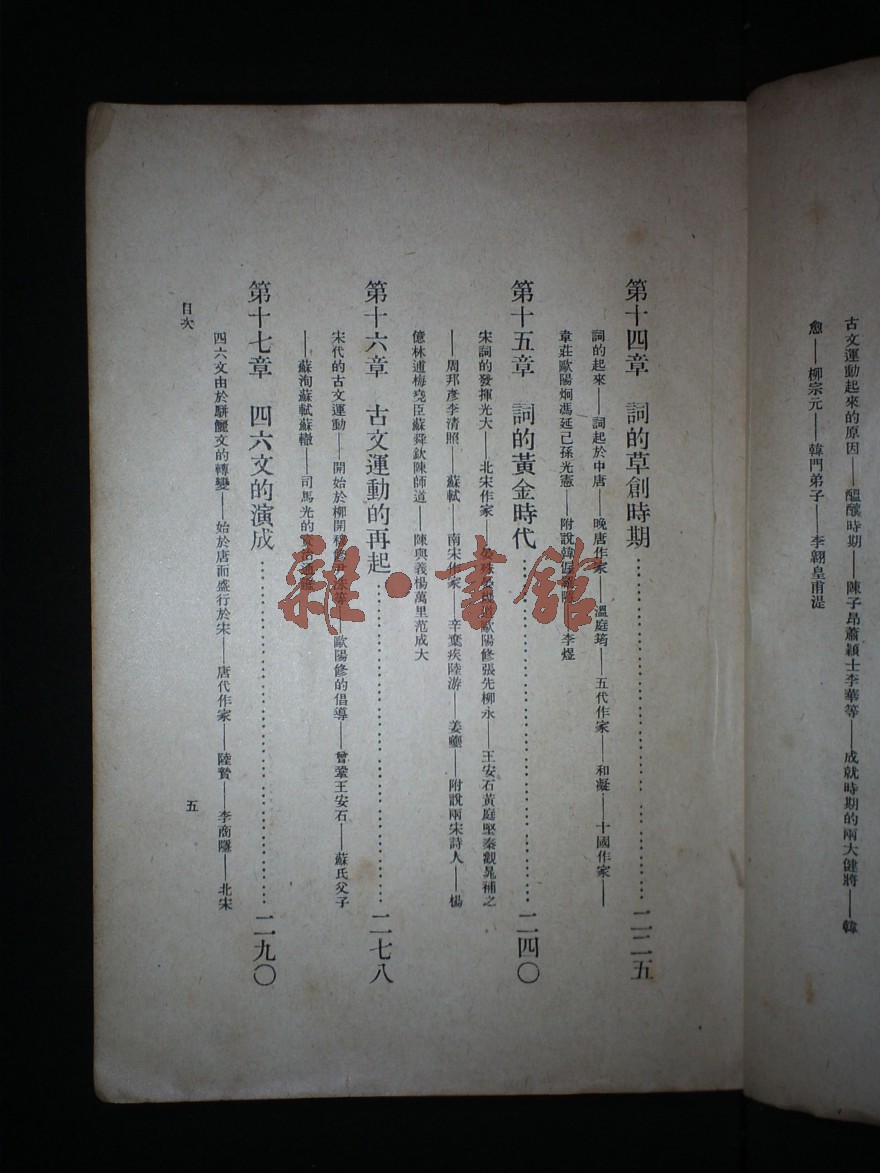 古文運動起來的原因——醞釀時期——陳子昂蕭穎士李華等——成就時期的兩大健將——韓
愈——柳宗元——韓門弟子——李翺皇甫湜
第十四章　詞的草創時期……二二五
詞的起來——詞起於中唐——晚唐作家——溫庭筠——五代作家——和凝——十國作家——
韋莊歐陽炯馮延己孫光憲——附說韓偓——李煜
第十五章　詞的黃金時代……二四〇
宋詞的發揮光大——北宋作家——歐陽修張先柳永——王安石黃庭堅秦觀晁補之
——周邦彥李清照——蘇軾——南宋作家——辛棄疾陸游——姜夔——附說兩宋詩人——楊
億林逋梅堯臣蘇舜欽陳師道——陳與義楊萬里范成大
第十六章　古文運動的再起……二七八
宋代的古文運動——開始於柳開穆——歐陽修的倡導——曾鞏王安石——蘇氏父子
——蘇洵蘇軾蘇轍——司馬光的
第十七章　四六文的演成……二九〇
四六文由於駢儷文的轉變——始於唐而盛行於宋——唐代作家——陸贄——李商隱——北宋
目次
五
雜·書館